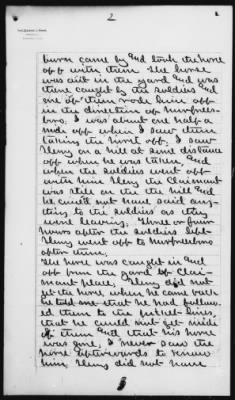 2
burn came by and took the horse
off with them The horse
was out in the yard and was
there caught by the soldiers and
one of them rode him off
in the direction of Murfrees-
boro. I was about one half a
mile off when I saw them
taking the horse off. I saw
Henry on a hill at some distance
off when he was taken, and
when the soldiers went off
with him. Henry the Claimant
was still on the hill and
he could not have said any-
thing to the soldiers as they
were leaving. Three or four
hours after the soldiers left
Henry went off to Murfreesboro
after them.
The horse was caught in and
off from the yard of Clai-
mant place. Henry did not
get the horse, when he came back
he told me that he had follow-
ed them to the picket-lines,
that he could not get inside
of them and that his horse
was gone. I never saw the
horse afterwards to know
him. Henry did not have